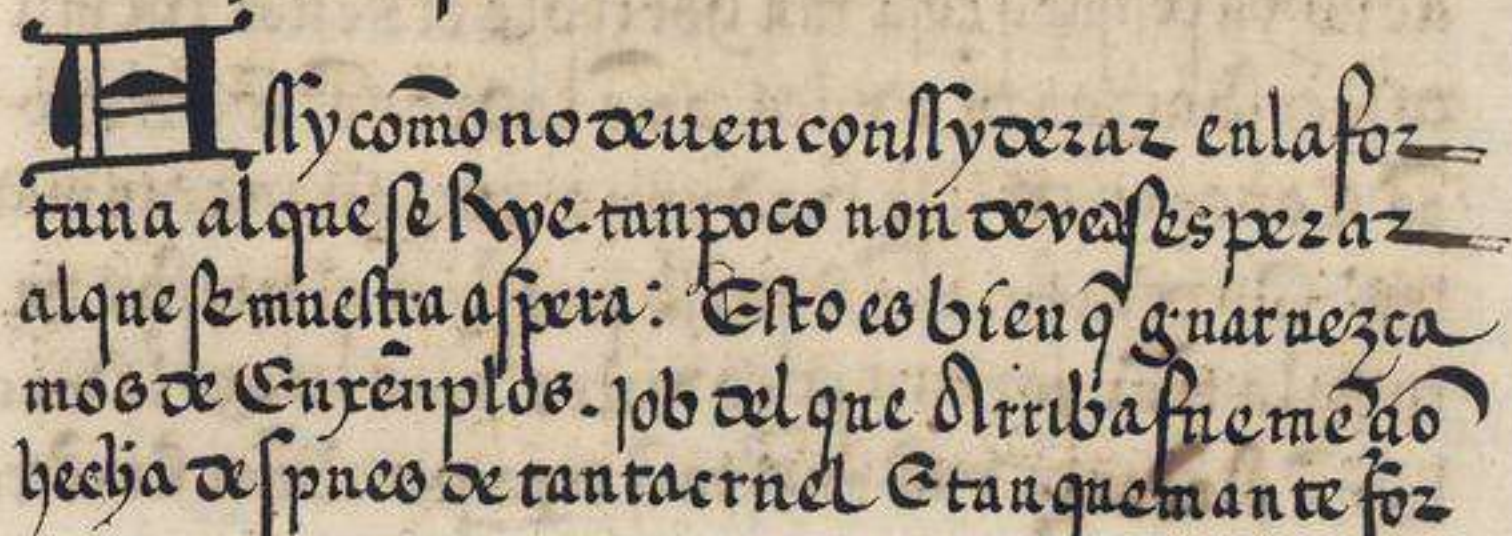 Assy com̃o no deuen conssyderar en la for
tuna al que se Rye. tanpoco non̄ deve desesperar
al que se muestra aspera: Esto es bien q̃ guarnezca
mos de Enxen̄plos. Job del que Arriba fue mẽçiõ
hecha despues de tanta cruel E tan quemante for